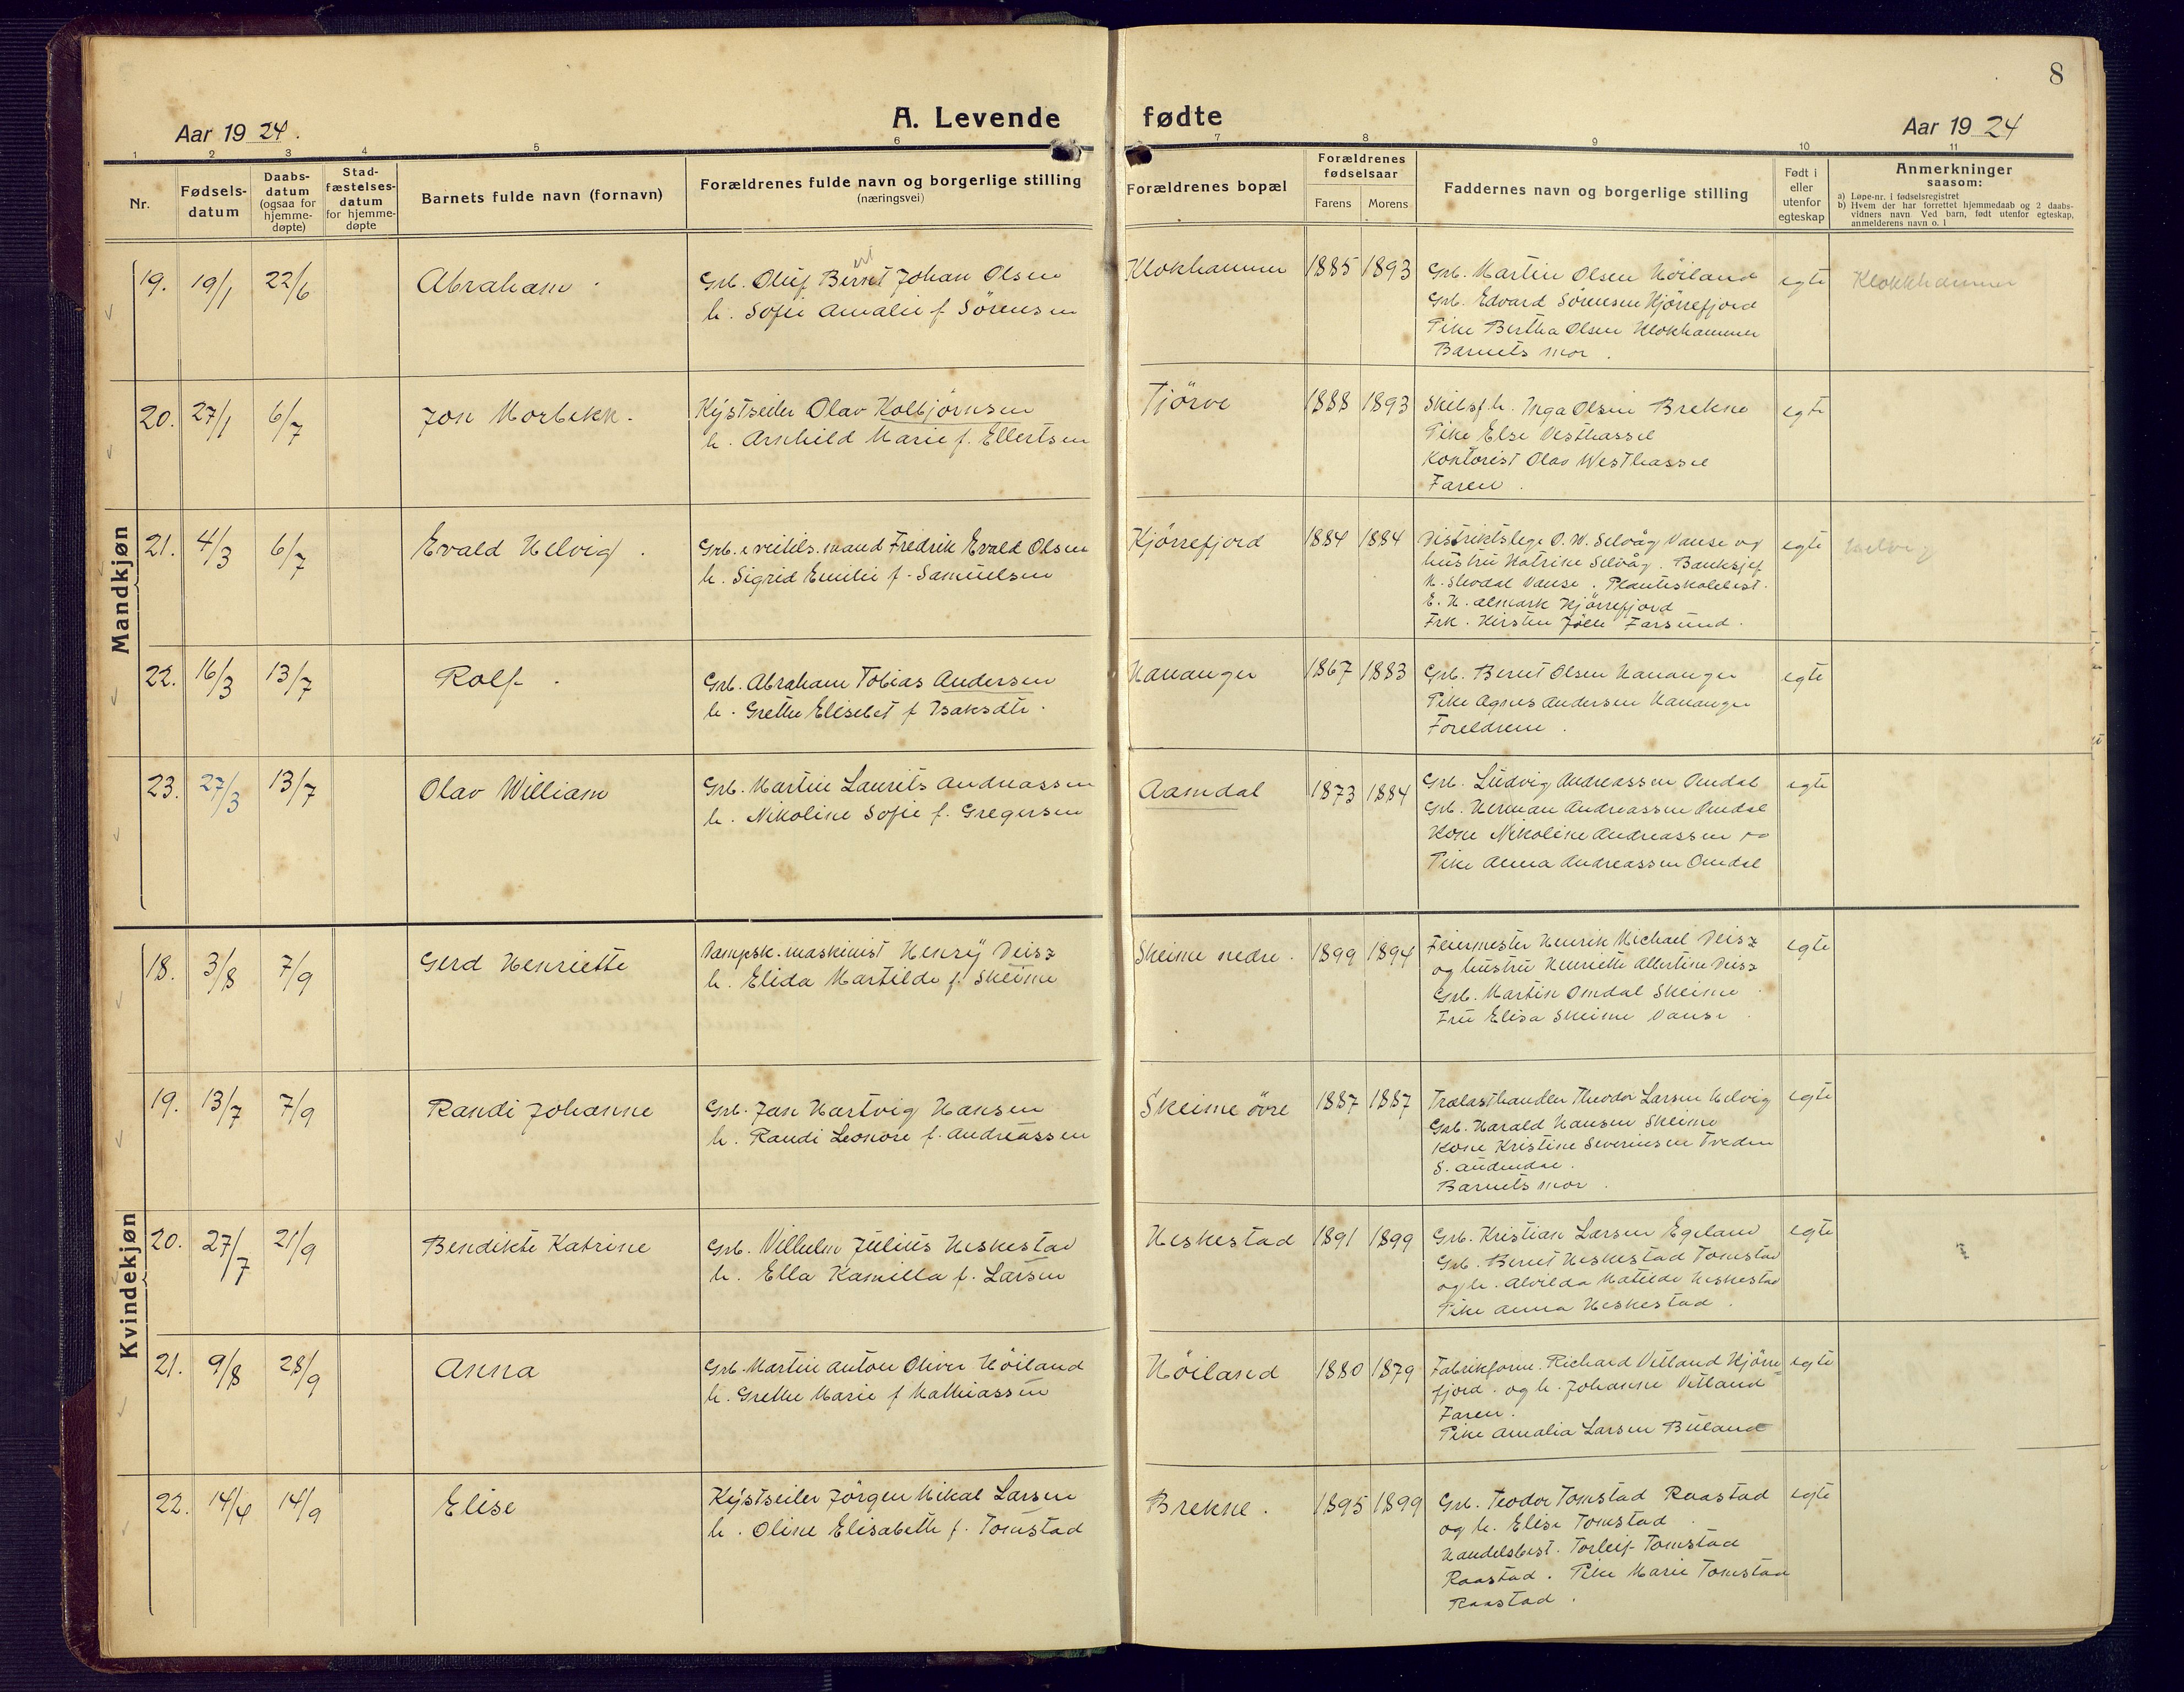 8
Aar 1924.
A. Levende fødte
Aar 1924
1 2 3 4 5 6 7 8 9 10 11
Nr.
Fødsels-
datum
Daabs-
datum
(ogsaa for
hjemme-
døpte)
Stad-
fæstelses-
datum
for hjemme-
døpte
Barnets fulde navn (fornavn)
Forældrenes fulde navn og borgerlige stilling
(næringsvei)
Forældrenes bopæl
Forældrenes
fødselsaar
Farens Morens
Faddernes navn og borgerlige stilling
Født i
eller
utenfor
egteskap
Anmerkninger
saasom:
a) Løpe-nr. i fødselsregistret
b) Hvem der har forrettet hjemmedaab og 2 daabs-
vidners navn Ved barn, født utenfor egteskap,
anmelderens navn o. l
Mandkjøn
19. 19/1 22/6
Abraham
Grb. Oluf Bernt Johan Olsen
h. Sofie Amalie f. Sørensen
Klokhammer
1885 1893
Grb. Martin Olsen Høiland
Grb. Edvard Sørensen Kjørrefjord
Pike Bertha Olsen Klokhammer
Barnets mor.
egte
Klokkhammer
20. 27/1 6/7
Jon Morbekk.
Kystseiler Olav Kolbjørnsen
h. Arnhild Marie f. Ellertsen
Tjørve
1888 1893
Skibsf.h. Inga Olsen Brekne
Pike Else Vesthassel
Kontorist Olav Westhassel
Faren.
egte
21. 4/3 6/7
Evald Helvig.
Grb. mand Fredrik Evald Olsen
h. Sigrid Emilie f. Samuelsen
Kjørrefjord
1884 1884
Distriktslege O. W. Selvåg Vanse og
hustru Katrine Selvåg. Banksjef
K. Skodal Vanse. Planteskolebest.
E. K. Almark Kjørrefjord
Frk. Kirsten Jølle Farsund.
egte
Helvig
22. 16/3 13/7
Rolf.
Grb. Abraham Tobias Andersen
h. Grethe Elisebet f. Isaksdtr.
Hananger
1867 1883
Grb. Bernt Olsen Hananger
Pike Agnes Andersen Hananger
Foreldrene.
egte
23. 27/3 13/7
Olav William
Grb. Martin Laurits Andreassen
h. Nikoline Sofie f. Gregersen
Aamdal
1873 1884
Grb. Ludvig Andreassen Omdal
Grb. Herman Andreassen Omdal
Kone Nikoline Andreassen
Pike Anna Andreassen Omdal
egte
Kvindekjøn
18. 3/8 7/9
Gerd Henriette
Dampsk. maskinist Henry Deisz
h. Elida Martilde f. Skeime
Skeime nedre.
1899 1894
Feiermester Henrik Michael Deisz
og hustru Henriette Albertine Deisz
Grb. Martin Omdal Skeime
Fru Elisa Skeime Vanse.
egte
19. 13/7 7/9
Randi Johanne
Grb. Jan Hartvig Hansen
h. Randi Leonore f. Andreassen
Skeime øvre
1887 1887
Trælasthandler Theodor Larsen Helvig
Grb. Harald Hansen Skeime
Kone Kristine Severinsen Tveden
S. Audnedal.
Barnets mor.
egte
20. 27/7 21/9
Bendikte Katrine
Grb. Vilhelm Julius Heskestad
h. Ella Kamilla f. Larsen
Heskestad
1891 1899
Grb. Kristian Larsen Egeland
Grb. Bernt Heskestad Tomstad
og h. Alvilda Matilde Heskestad
Pike Anna Heskestad.
egte
21. 9/8 28/9
Anna
Grb. Martin Anton Oliver Høiland
h. Grethe Marie f. Mathiassen
Høiland
1880 1879
Fabrikform. Richard Vetland Kjørre
fjord. og h. Johanne Vetland
Faren.
Pike Amalia Larsen Buland
egte
22. 14/4 14/9
Elise
Kystseiler Jørgen Mikal Larsen
h. Oline Elisabeth f. Tomstad
Brekne.
1895 1899
Grb. Teodor Tomstad Raastad
og h. Elise Tomstad
Handelsbest. Torleif Tomstad
Raastad. Pike Marie Tomstad
Raastad.
egte